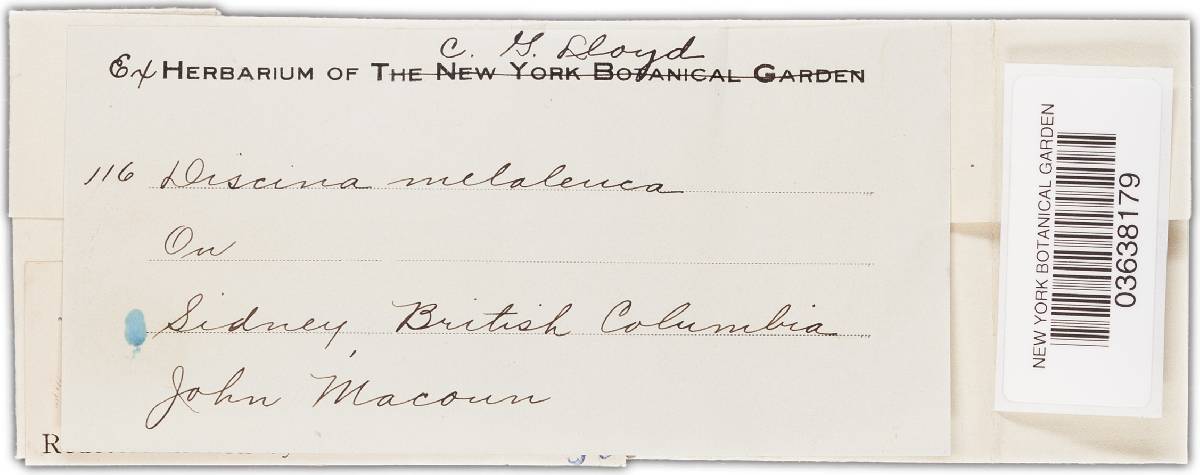 C. G. Lloyd
Ex HERBARIUM OF THE NEW YORK BOTANICAL GARDEN
116 Discina melaleuca
On
Sidney, British Columbia
John Macoun
NEW YORK BOTANICAL GARDEN
03638179